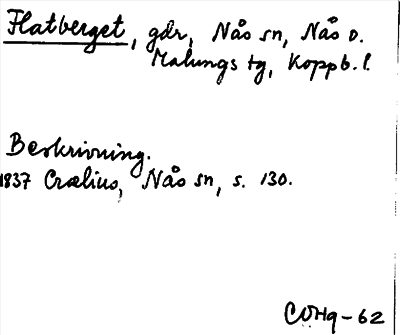 Flatberget, gdr, Nås sn, Nås o.
Malungs tg, Koppb. l.
Beskrivning.
1837 Crælius, Nås sn, s. 130.
CWHg-62